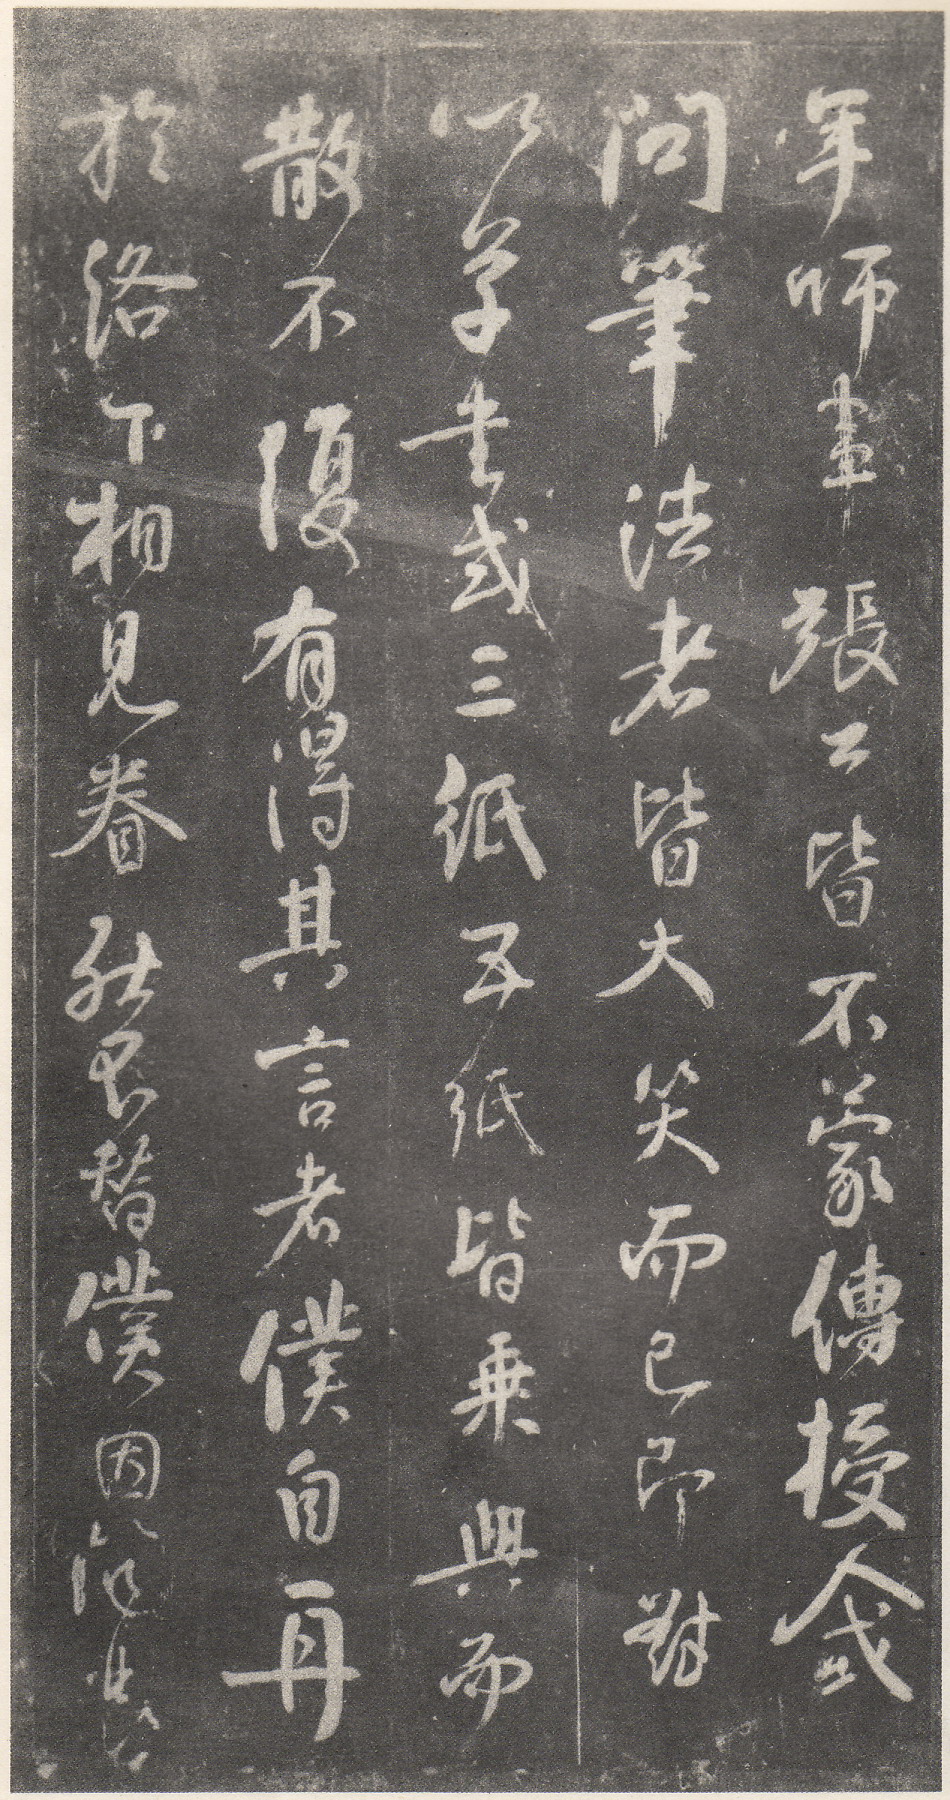 年師事張公皆不蒙傳授人或
問筆法者皆大笑而已即對
以草書或三紙五紙皆乘興而
散不復有得其言者僕自再
於洛下相見眷然替僕因